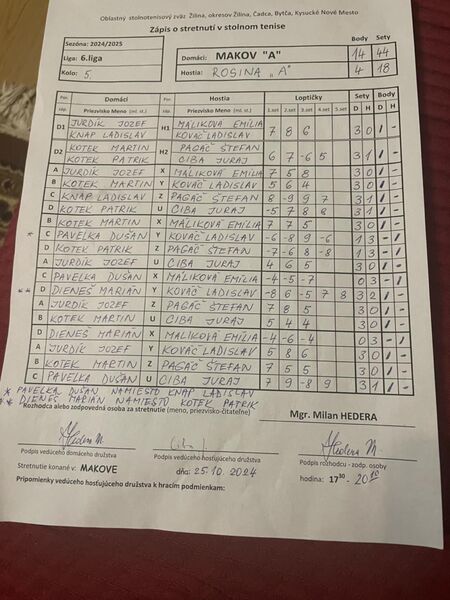 Oblastný stolnotenisový zväz Žilina, okresov Žilina, Čadca, Bytča, Kysucké Nové Mesto
Zápis o stretnutí v stolnom tenise
Body Sety
Sezóna: 2024/2025
Liga: 6.liga
Kolo: 5.
Domáci: MAKOV "A" 14 44
Hostia: ROSINA "A" 4 18
Por. Domáci Por. Hostia Loptičky Sety Body
záp. Priezvisko Meno (ml. st.) záp. Priezvisko Meno (ml. st.) 1.set 2.set 3.set 4.set 5.set D H D H
D1 JURDÍK JOZEF H1 MALIKOVÁ EMÍLIA 7 8 6 3 0 1 -
KNAP LADISLAV KOVÁČ LADISLAV
D2 KOTEK MARTIN H2 PAGÁČ ŠTEFAN 6 7 -6 5 3 1 1 -
KOTEK PATRIK CIBA JURAJ
A JURDÍK JOZEF X MALIKOVÁ EMÍLIA 7 5 8 3 0 1 -
B KOTEK MARTIN Y KOVÁČ LADISLAV 5 6 4 3 0 1 -
C KNAP LADISLAV Z PAGÁČ ŠTEFAN 8 -9 9 7 3 1 1 -
D KOTEK PATRIK U CIBA JURAJ -5 7 8 8 3 1 1 -
B KOTEK MARTIN X MALIKOVÁ EMÍLIA 7 7 5 3 0 1 -
* C PAVELKA DUŠAN Y KOVÁČ LADISLAV -6 -8 9 -6 1 3 - 1
D KOTEK PATRIK Z PAGÁČ ŠTEFAN -7 -6 8 -8 1 3 - 1
A JURDÍK JOZEF U CIBA JURAJ 4 6 5 3 0 1 -
C PAVELKA DUŠAN X MALIKOVÁ EMÍLIA -4 -5 -7 0 3 - 1
** D DIENEŠ MARIÁN Y KOVÁČ LADISLAV -8 6 -5 7 8 3 2 1 -
A JURDÍK JOZEF Z PAGÁČ ŠTEFAN 7 8 5 3 0 1 -
B KOTEK MARTIN U CIBA JURAJ 5 4 4 3 0 1 -
D DIENEŠ MARIÁN X MALIKOVÁ EMÍLIA -4 -6 -4 0 3 - 1
A JURDÍK JOZEF Y KOVÁČ LADISLAV 5 8 6 3 0 1 -
B KOTEK MARTIN Z PAGÁČ ŠTEFAN 7 5 5 3 0 1 -
C PAVELKA DUŠAN U CIBA JURAJ 7 9 -8 9 3 1 1 -
* PAVELKA DUŠAN NAMIESTO KNAP LADISLAV
** DIENEŠ MARIÁN NAMIESTO KOTEK PATRIK
Rozhodca alebo zodpovedná osoba za stretnutie (meno, priezvisko-čitateľne)
Mgr. Milan HEDERA
Hedera M. Hedera M.
Podpis vedúceho domáceho družstva Podpis vedúceho hosťujúceho družstva Podpis rozhodcu - zodp. osoby
Stretnutie konané v: MAKOVE dňa: 25.10.2024 hodina: 17³⁰ - 20¹⁰
Pripomienky vedúceho hosťujúceho družstva k hracím podmienkam: